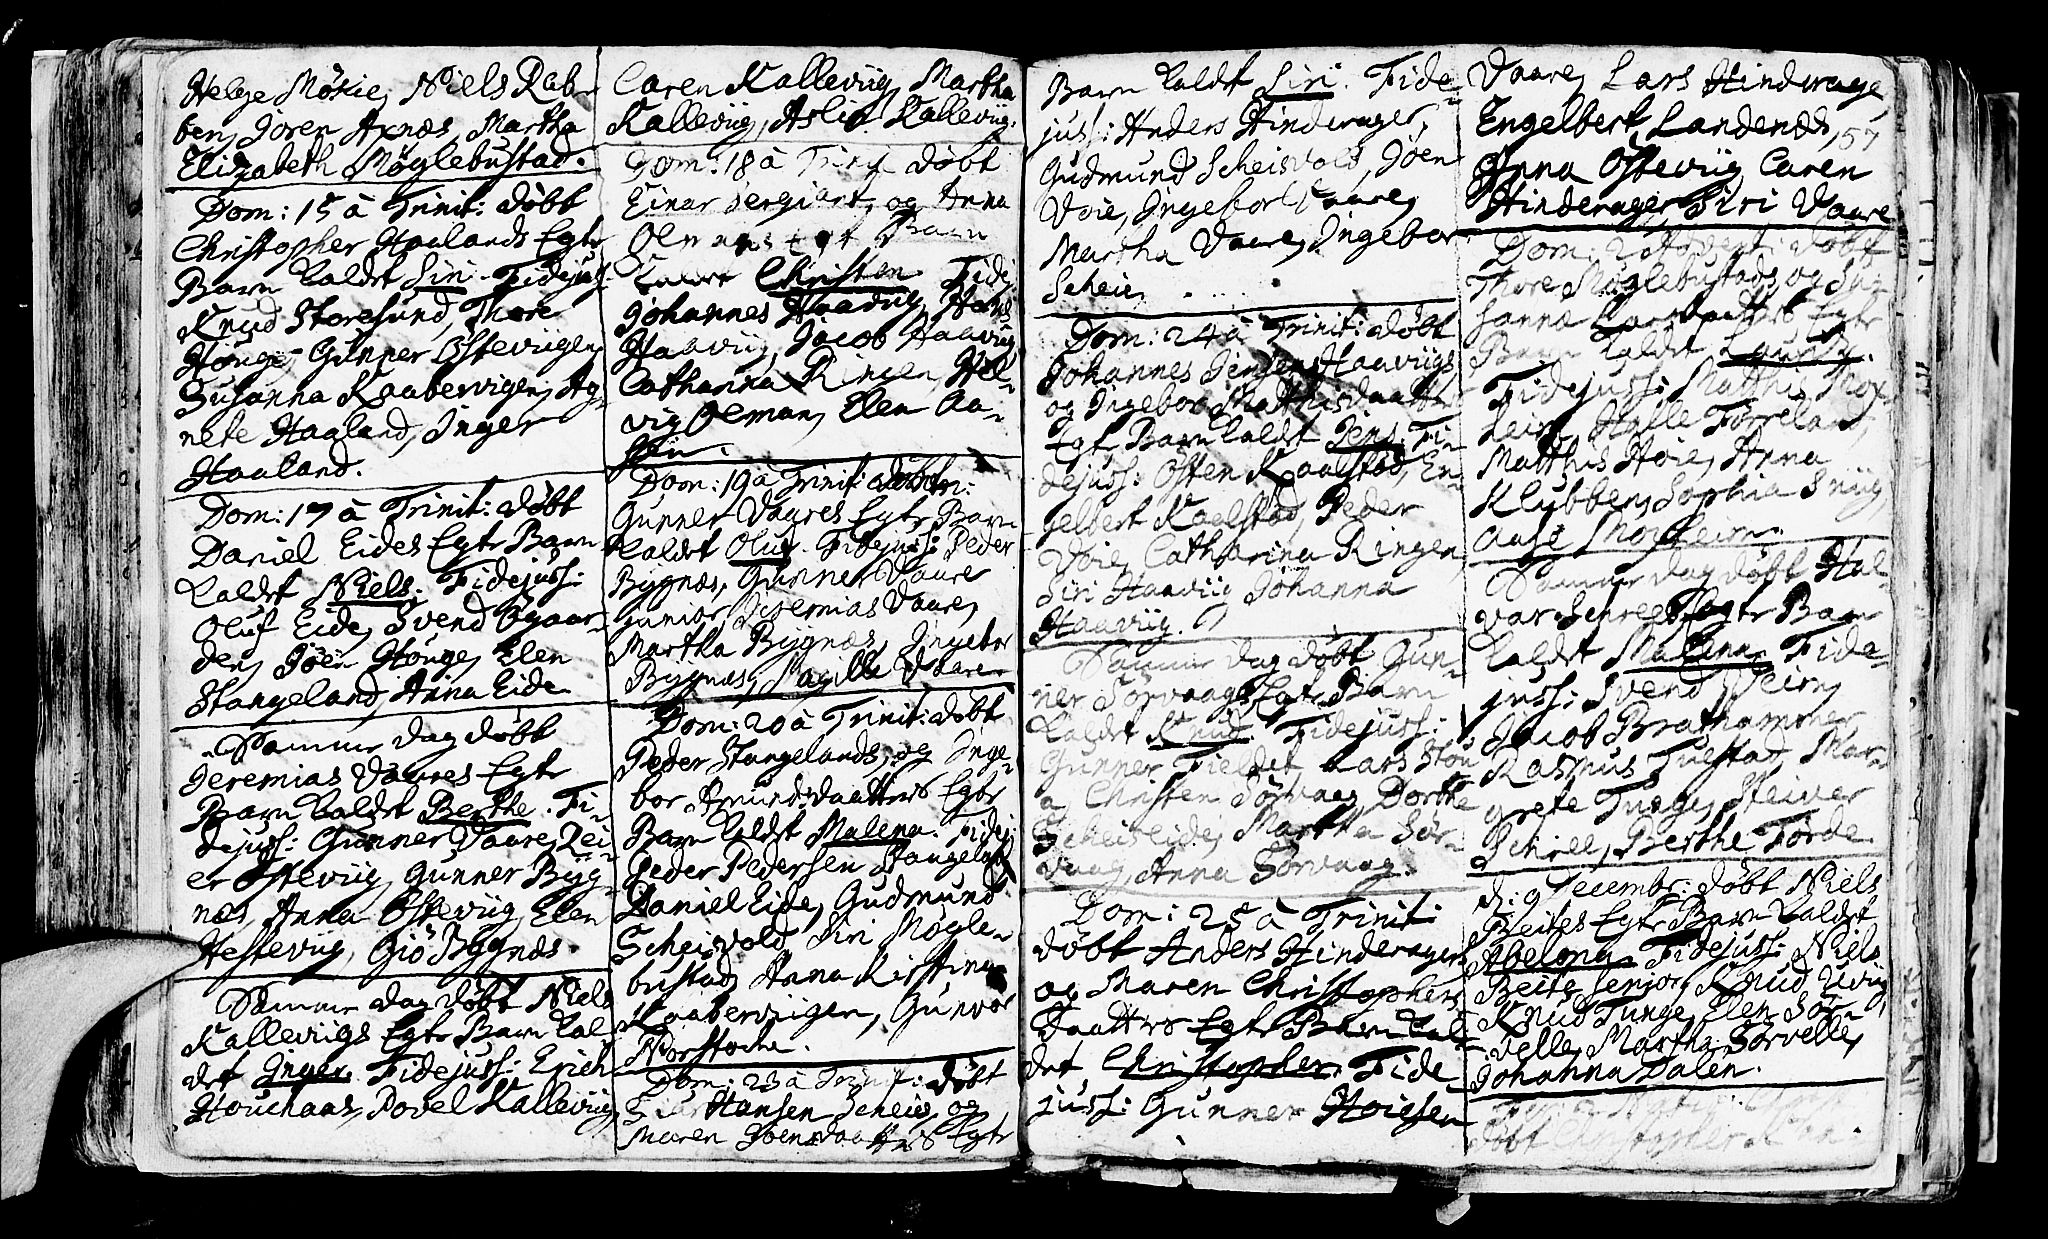 Helge Møkie, Niels Rab-
ben, Joren Axnæs, Martha
Elizabeth Møglebustad.
Dom: 15 à Trinit: døbt
Christopher Haalands Egte
Barn kaldet Siri. Fidejuss:
Knud Storesund, Thore
Hønge, Gunner Osteviigen
Susanna Kaabervigen, Ag-
nete Haaland, Inger
Haaland.
Dom: 17 à Trinit: døbt
Daniel Eides Egte Barn
kaldet Niels. Fidejuss:
Oluf Eide, Svend Øgaar-
den, Joen Hønge, Elen
Stangeland, Anna Eide
Samme dag døbt
Jeremias Vaares Egte
Barn kaldet Berthe. Fi-
dejuss: Gunner Vaare, Rei-
er Osteviig, Gunner Byg-
næs, Anna Osteviig, Elen
Hesteviig, Giø Bygnæs.
Samme dag døbt Niels
Kallevigs Egte Barn kal-
det Inger. Fidejuss: Erich
Houchaas, Povel Kalleviig,
Caren Kalleviig, Martha
Kalleviig, Aslie Kalleviig.
Dom: 18 à Trinit døbt
Einer Sergiant, og Anna
Barn
kaldet Christen Fidej
Johannes Haaviig, Hans
Haaviig, Jacob Haaviig
Catharina Ringen, Hel-
vig Oeman, Elen Aa-
sen.
Dom: 19 à Trinit: døbt
Gunner Vaares Egte Barn
kaldet Oluf. Fidejuss: Peder
Bygnæs, Gunner Vaare
junior, Jeremias Vaare,
Martha Bygnæs, Ingebor
Bygnæs, Magille Vaare
Dom: 20 à Trinit: døbt
Peder Stangelands, og Inge-
bor Amundsdaatters Egte
Barn kaldet Malena. Fidej
Peder Pedersen Stangeland
Daniel Eide, Gudmund
Scheisvold, Siri Møgle-
bustad, Anna Kirstina
Kaaberviigen, Gunvor
Norstoche.
Dom: 23 à Trinit: døbt
Hansen Scheie, og
Maren Joensdaatters Egte
Barn kaldet Siri. Fide-
juss: Anders Hinderager,
Gudmund Scheisvold, Joen
Voie, Ingebor Vaare,
Martha Vaare, Ingebor
Scheie.
Dom: 24 à Trinit: døbt
Johannes Jensen Haaviigs
og Ingebor Matthisdaatters
Egte Barn kaldet Jens. Fi-
dejuss: Østen Kaalstad, En-
gelbert Kaalstad, Peder
Voie, Catharina Ringen
Siri Haaviig, Johanna
Haaviig.
Samme dag døbt Gun-
ner Sørvaags Egte Barn
kaldet Knud. Fidejuss:
Gunner Fieldet, Lars Stou
a, Christen Sørvaag, Dorthe
Scheisleide, Martha Sør-
vaag, Anna Sørvaag.
Dom: 25 à Trinit:
døbt Anders Hinderagers
og Maren Christophers
daatters Egte Barn kal-
det Christopher. Fide-
juss: Gunner Hoiesen
Vaare, Lars Hinderage,
Engelbert Landenæs, 57
Anna Osteviig, Caren
Hinderager, Siri Vaare
Dom: 2 Advent: døbt
Thore Møglebustads, og Su-
sanna Egte
Barn kaldet
Fidejuss: Matthis Mox-
heim, Halle Førreland,
Matthis Høie, Anna
Klubben, Sophia Sniig,
Aase Moxheim.
Samme dag døbt Hal-
var Schrees Egte Barn
kaldet Malena Fide-
juss: Svend
Jacob Brathammer
Rasmus Tuestad, Mar-
grete Tunge, Steiner
Schree, Berthe Førde
d: 9 Decembr: døbt Niels
Beites Egte Barn kaldet
Abelona Fidejuss: Niels
Beite senior, Knud Uviig
Knud Tunge, Elen Sør-
velle, Martha Sørvelle,
Johanna Dalen.
døbt Christopher